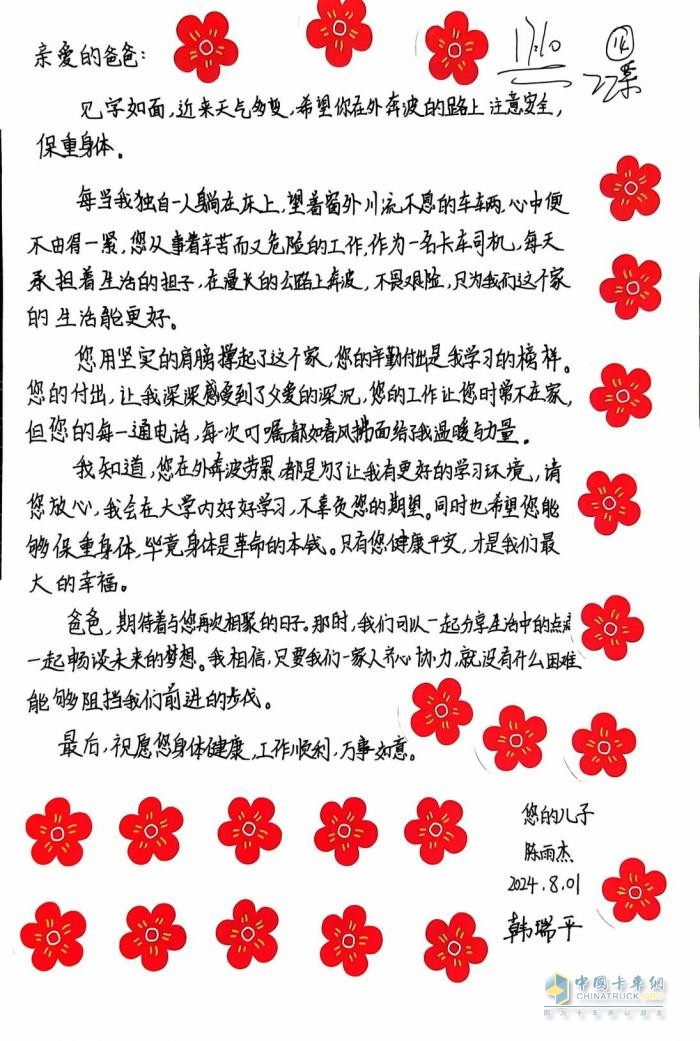 亲爱的爸爸：
17:10
见字如面，近来天气多变，希望你在外奔波的路上注意安全，
保重身体。
每当我独自一人躺在床上，望着窗外川流不息的车车辆，心中便
不由得一紧，您从事着辛苦而又危险的工作，作为一名卡车司机，每天
承担着生活的担子，在漫长的公路上奔波，不畏艰险，只为我们这个家
的生活能更好。
您用坚实的肩膀撑起了这个家，您的辛勤付出是我学习的榜样。
您的付出，让我深深感受到了父爱的深沉，您的工作让您时常不在家，
但您的每一通电话，每一次叮嘱都如春风拂面给了我温暖与力量。
我知道，您在外奔波劳累，都是为了让我有更好的学习环境，请
您放心，我会在大学内好好学习，不辜负您的期望。同时也希望您能
够保重身体，毕竟身体是革命的本钱。只有您健康平安，才是我们最
大的幸福。
爸爸，期待着与您再次相聚的日子。那时，我们可以一起分享生活中的点
一起畅谈未来的梦想。我相信，只要我们一家人齐心协力，就没有什么困难
能够阻挡我们前进的步伐。
最后，祝愿您身体健康，工作顺利，万事如意。
您的儿子
陈雨杰
2024.8.01
韩瑞平
中国卡车网
CHINATRUCK.ORG
因为卡车所以朋友